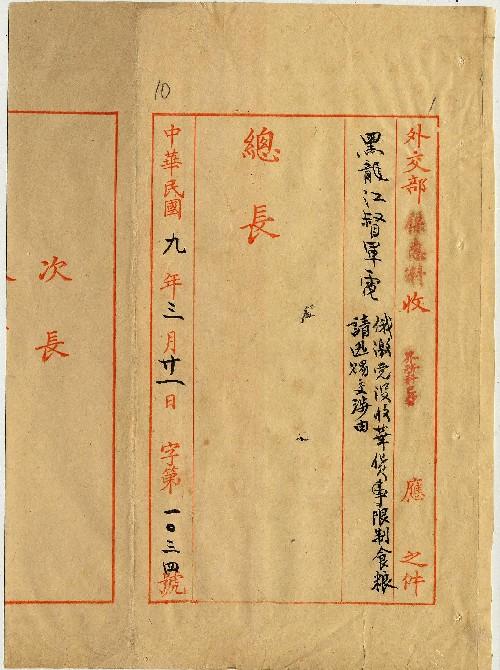 10
外交部 收 應 之件
黑龍江督軍電
俄激党沒收華貨事限制食粮
請迅賜交涉由
總長
中華民國九年三月廿一日 字第一〇三四號
次長